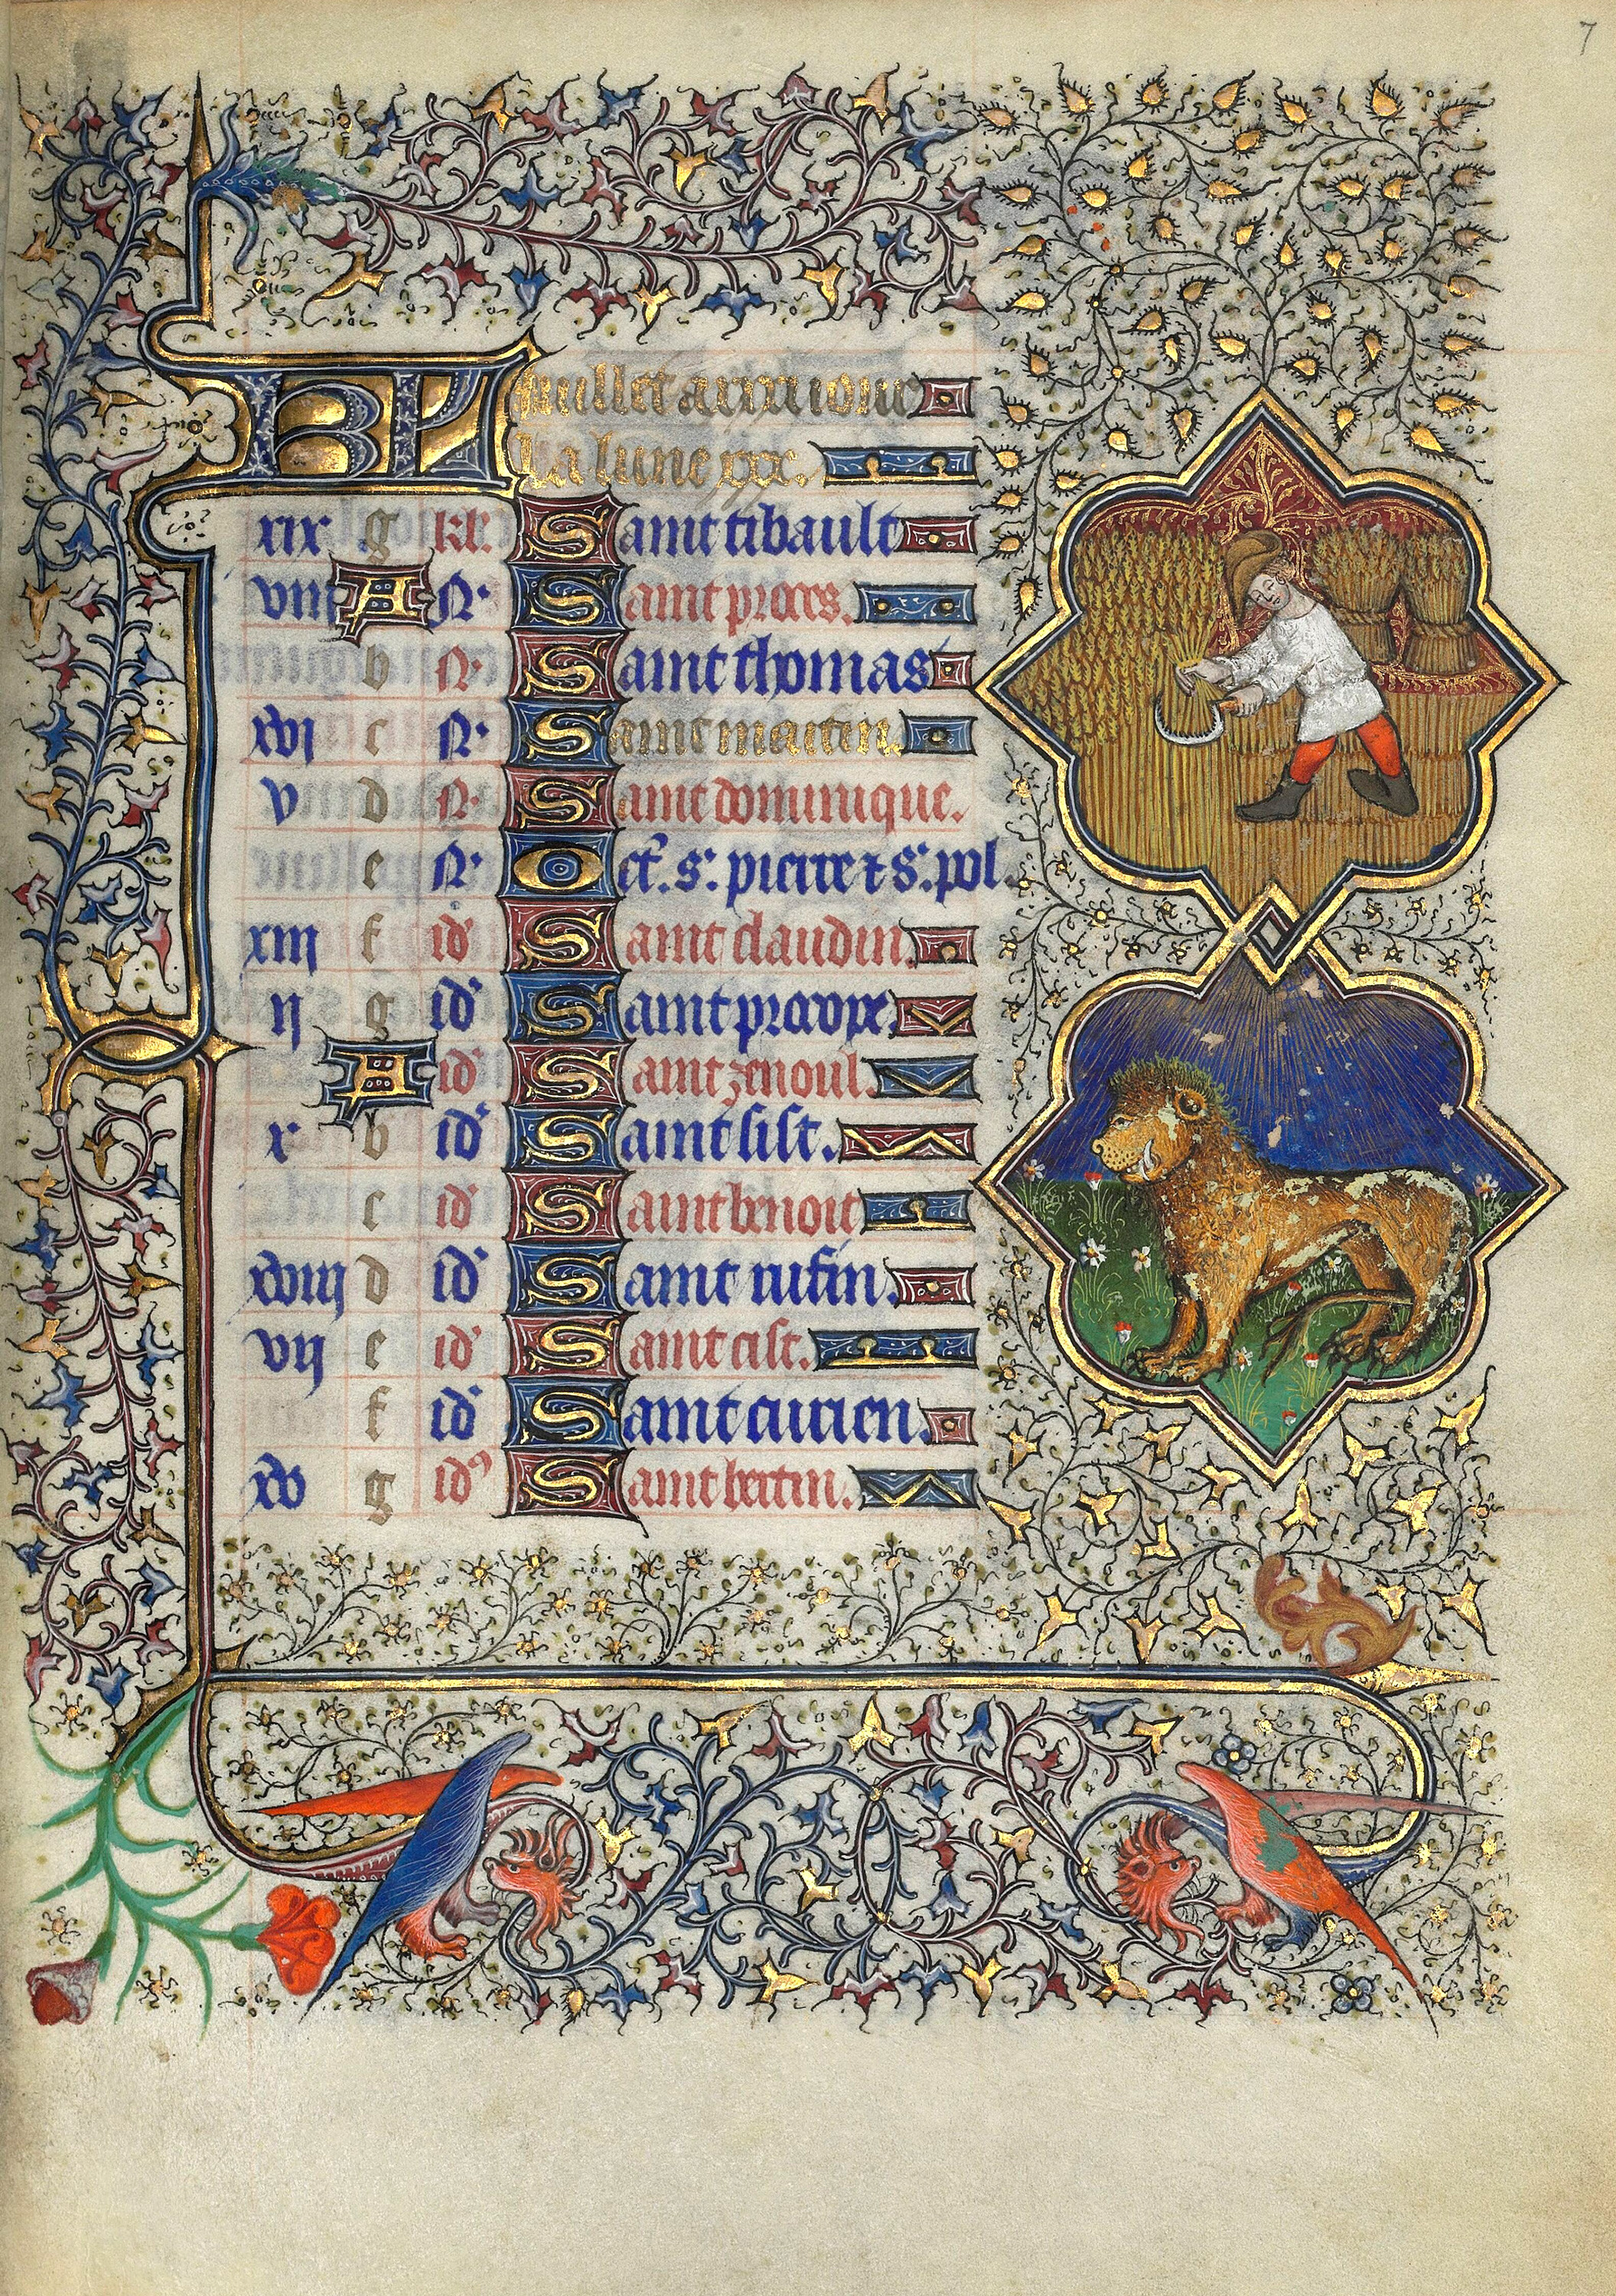 7
KL Juillet a xxxi iours
La lune xxx.
xix g kl. Saint tibault
viii A N. Saint proces.
b N. Saint thomas
xvi c N. Saint martin.
v d N. Saint dominique.
e N. Oct. s. pierre & s. pol.
xiii f id Saint claudin.
ii g id Saint procope.
A id Saint zenoul.
x b id Saint sist.
c id Saint benoit
xviii d id Saint rufin.
vii e id Saint cist.
f id Saint cirien.
xv g id9 Saint bertin.